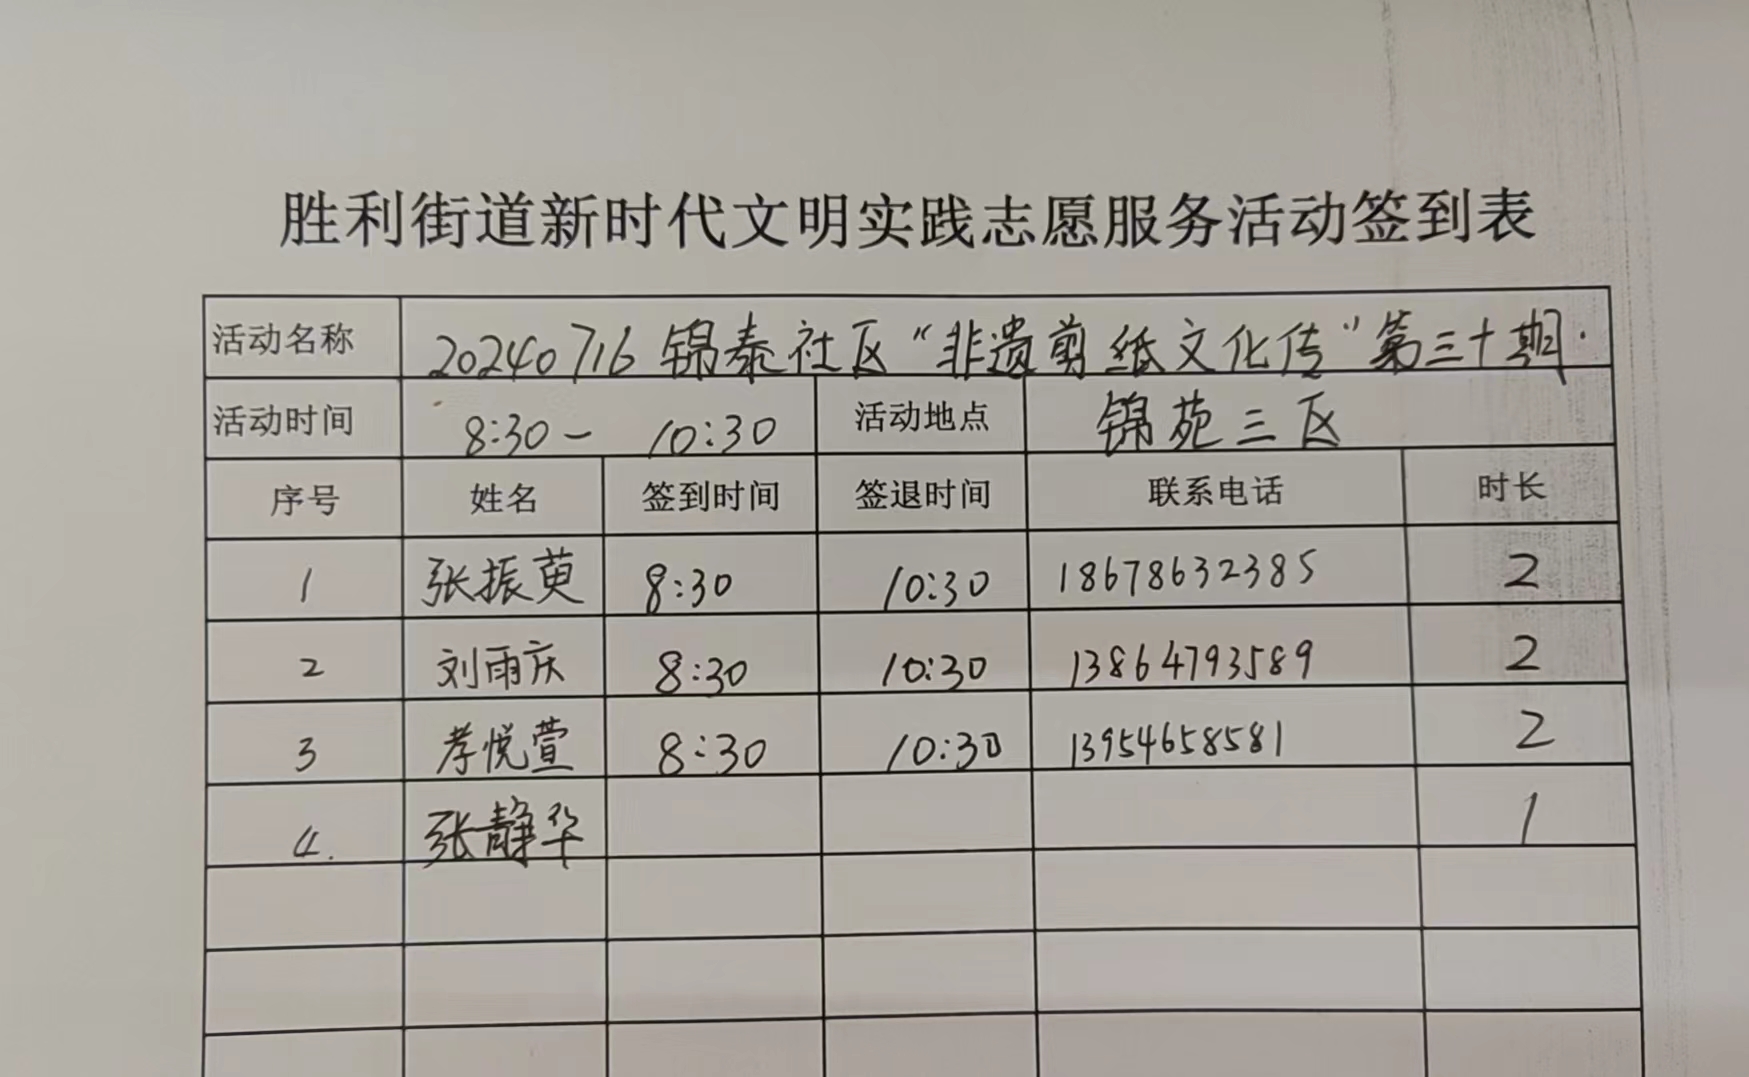 胜利街道新时代文明实践志愿服务活动签到表
活动名称 20240716 锦泰社区“非遗剪纸文化传”第三十期.
活动时间 8:30- 10:30 活动地点 锦苑三区
序号 姓名 签到时间 签退时间 联系电话 时长
1 张振萸 8:30 10:30 18678632385 2
2 刘雨庆 8:30 10:30 13864793589 2
3 孝悦萱 8:30 10:30 13954658581 2
4. 张静华 1